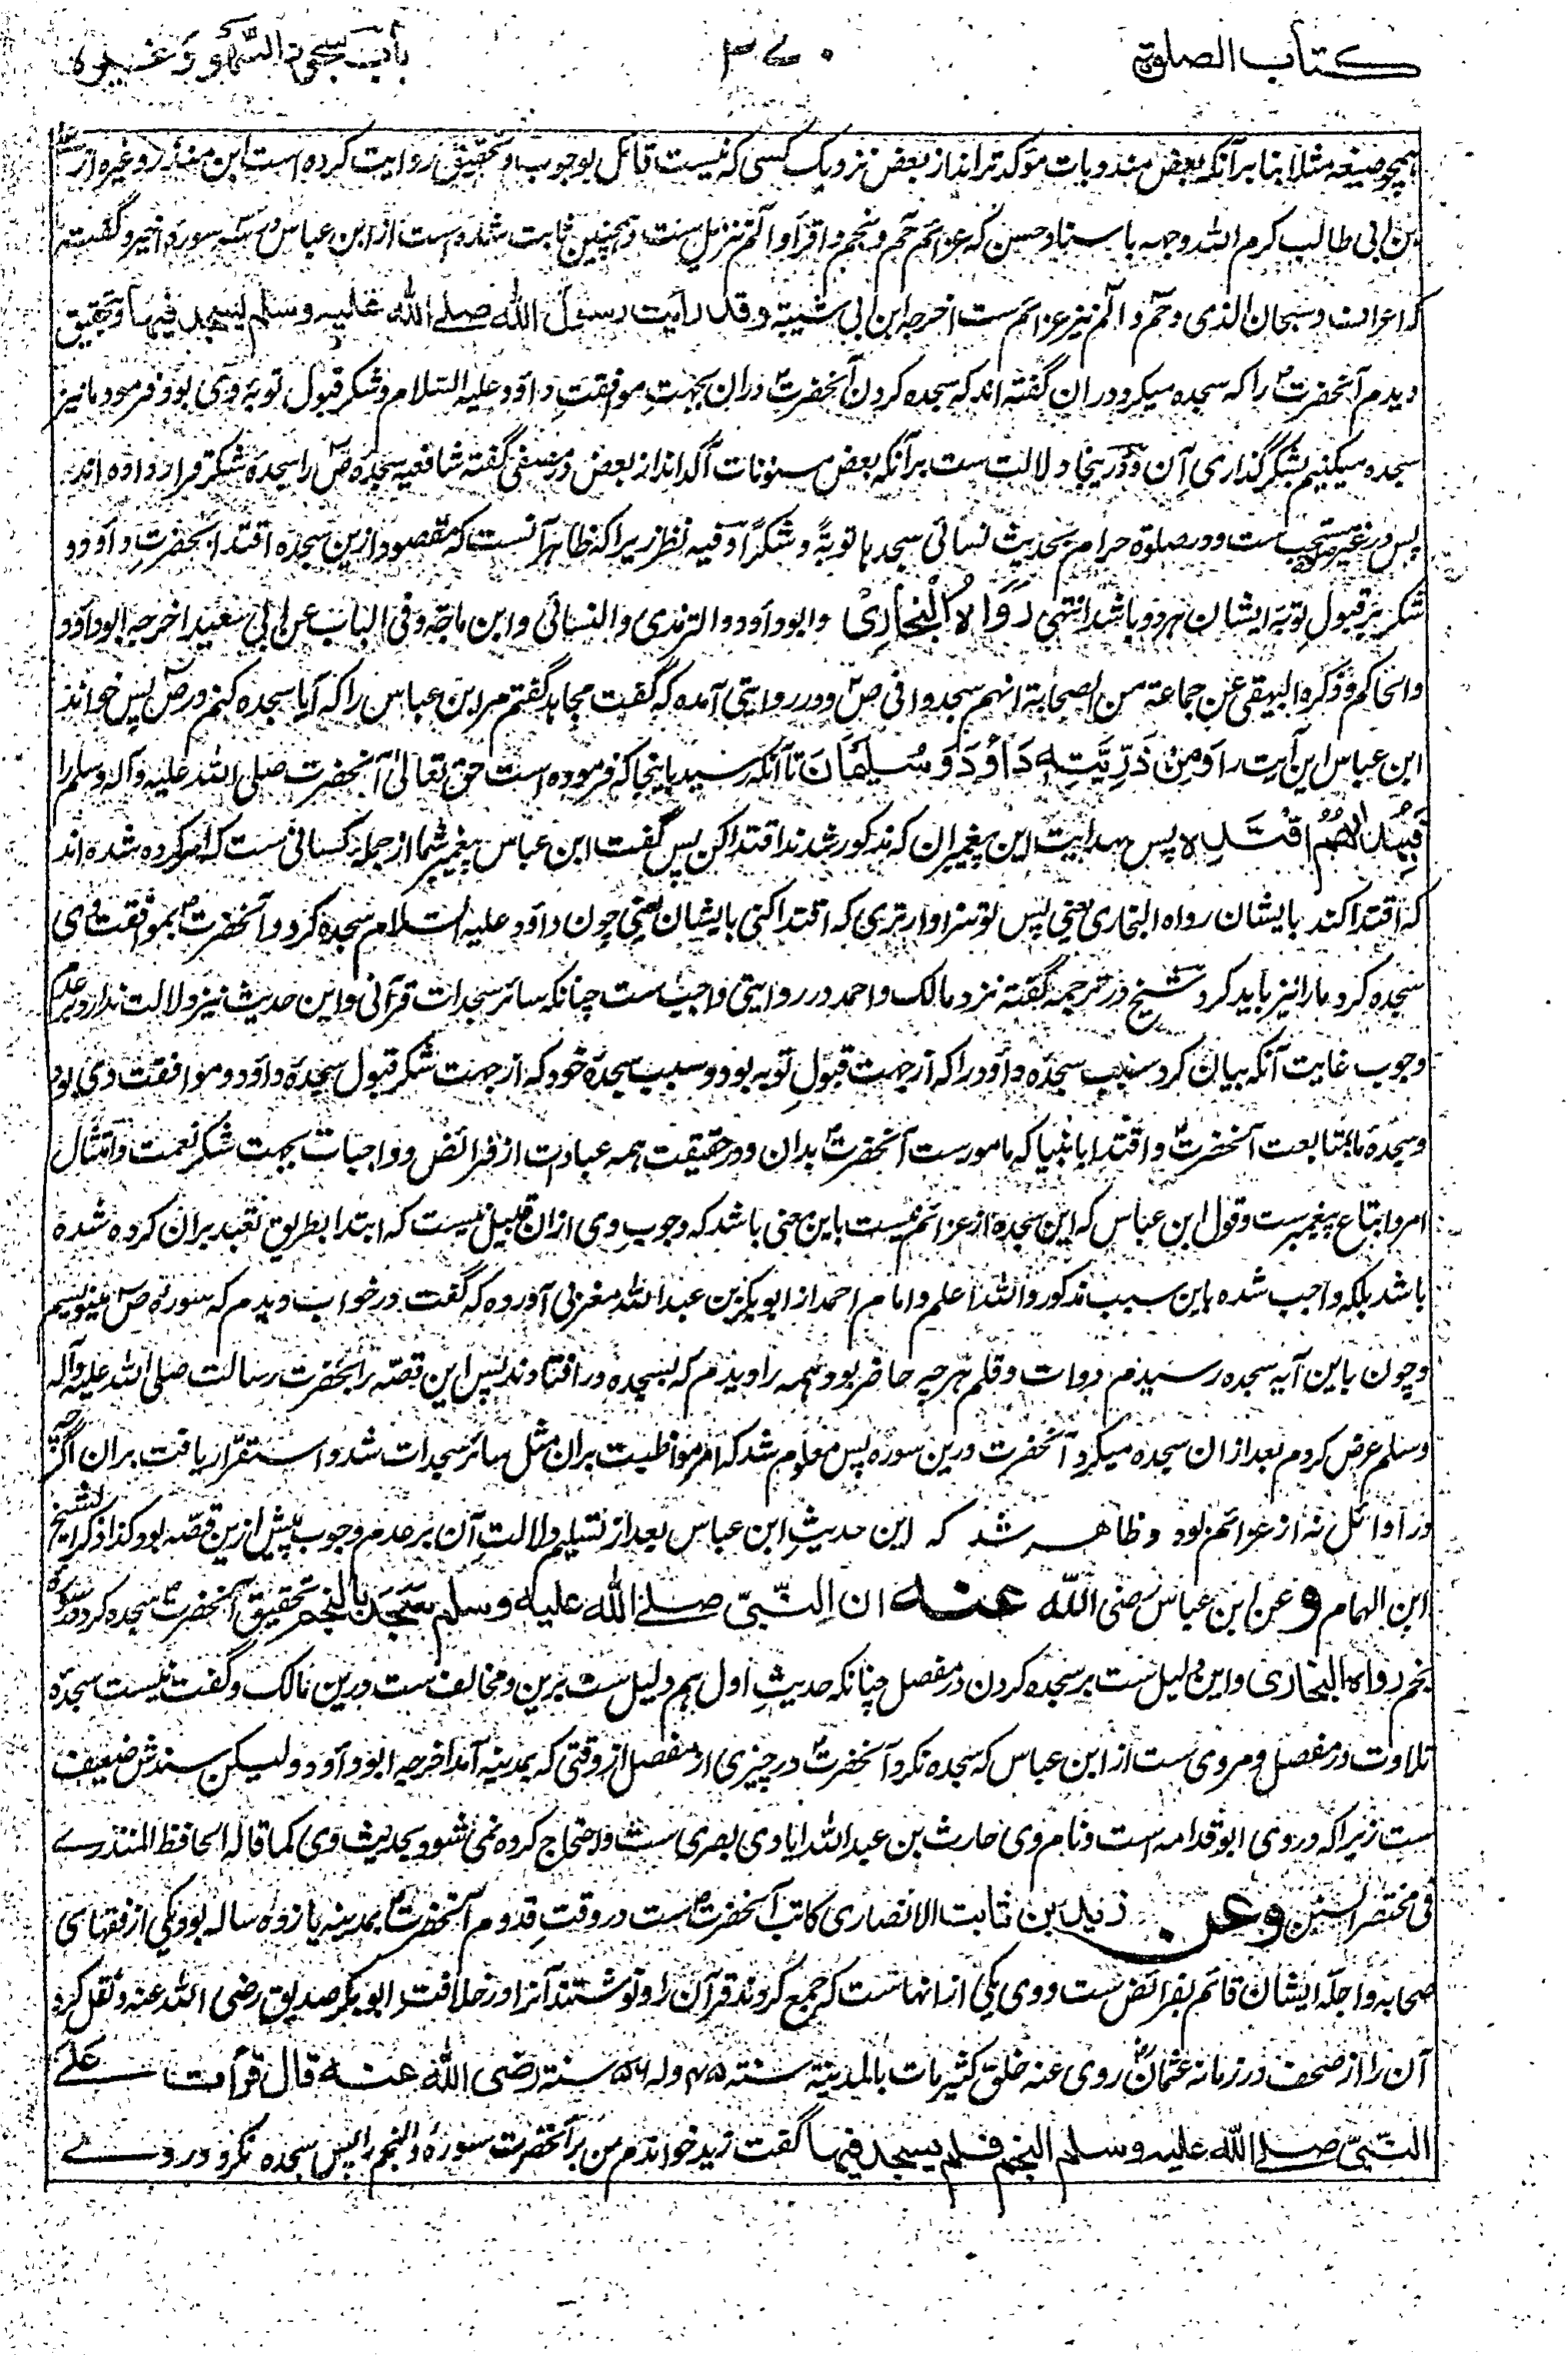 كتاب الصلوة
٣٧٠
باب سجود السهو وغيره
همچو صیغه مثلا بنا برآنکه بعض مندوبات موکد تر انداز بعض نزدیک کسی که نیست قائل بوجوب و تحقیق روایت کرده است ابن منذر و غیره از
بن ابی طالب کرم الله وجهه باسناد حسن که عزائم حم و نجم و اقرأ و الم تنزیل ست و همچنین ثابت شده است از ابن عباس در سه سوره اخیر و گفته
که اعراف و سبحان الذی و حم و الم نیز عزائم ست اخرجه ابن ابی شیبة وقد رأيت رسول الله صلے الله عليه وسلم يسجد فيها و تحقیق
دیدم آنحضرت را که سجده میکرد دران گفته اند که سجده کردن آنحضرت دران بجهت موافقت داود علیه السلام و شکر قبول توبه وی بود و فرمود ما نیز
سجده میکنیم بشکرگذاری آن و درینجا دلالت ست برآنکه بعض مسنونات آکد انداز بعض در گفته شافعیه سجده ص را سجدهٔ شکر قرار داده اند
پس در غیر صلوة مستحب ست و در صلوة حرام بحدیث نسائی سجدها توبةً و شکرًا و فیه نظر زیرا که ظاهر آنست که مقصود ازین سجده اقتدا بحضرت داود و
شکر بر قبول توبه ایشان هر دو باشد انتهی رواه البخاری وابو داود والترمذی والنسائی وابن ماجة وفی الباب عن ابی سعید اخرجه ابو داود
والحاکم وذکره البیهقی عن جماعة من الصحابة انهم سجدوا فی ص و در روایتی آمده که گفت مجاهد گفتم مر ابن عباس را که آیا سجده کنم در ص پس خواند
ابن عباس این آیت را وَمِنْ ذُرِّيَّتِهٖ دَاوُدَ وَسُلَيْمَانَ تا آنکه رسید باینجا که فرموده است حق تعالی آنحضرت صلی الله علیه وآله وسلم را
فَبِهُدٰىهُمُ اقْتَدِهْ پس بهدایت این پیغمبران که مذکور شدند اقتدا کن پس گفت ابن عباس پیغمبر شما از جمله کسانی ست که امر کرده شده اند
که اقتدا کند بایشان رواه البخاری یعنی پس تو سزاوار تری که اقتدا کنی بایشان یعنی چون داود علیه السلام سجده کرد و آنحضرت بموافقت وی
سجده کرد ما را نیز باید کرد شیخ در ترجمه گفته نزد مالک و احمد در روایتی واجب ست چنانکه سائر سجدات قرآنی و این حدیث نیز دلالت ندارد بر عدم
وجوب غایت آنکه بیان کرد سبب سجدهٔ داود را که از جهت قبول توبه بود و سبب سجدهٔ خود که از جهت شکر قبول سجدهٔ داود و موافقت وی بود
و سجدهٔ ما بمتابعت آنحضرت و اقتدا بانبیا که مامورست آنحضرت بدان و در حقیقت همه عبادات از فرائض و واجبات بجهت شکر نعمت و امتثال
امر و اتباع پیغمبرست و قول ابن عباس که این سجده از عزائم نیست باین معنی باشد که وجوب وی ازان قبیل نیست که ابتدا بطریق تعبد بران کرده شده
باشد بلکه واجب شده باین سبب مذکور والله اعلم و امام احمد از ابوبکر بن عبد الله مغربی آورده که گفت در خواب دیدم که سوره ص مینویسم
و چون باین آیه سجده رسیدم دوات و قلم هرچه حاضر بود همه را دیدم که بسجده درافتادند پس این قصه را بحضرت رسالت صلی الله علیه وآله
وسلم عرض کردم بعد ازان سجده میکرد آنحضرت درین سوره پس معلوم شد که امر مواظبت بران مثل سائر سجدات شد و استقرار یافت بران اگرچه
در اوائل نه از عزائم بود و ظاهر شد که این حدیث ابن عباس بعد از تسلیم دلالت آن بر عدم وجوب پیش ازین قصه بود کذا ذکر الشیخ
ابن الهمام وعن ابن عباس رضی الله عنه ان النبی صلے الله علیه وسلم سجد بالنجم تحقیق آنحضرت سجده کرد در سوره
نجم رواه البخاری و این دلیل ست بر سجده کردن در مفصل چنانکه حدیث اول هم دلیل ست برین و مخالف ست درین مالک و گفت نیست سجدهٔ
تلاوت در مفصل و مروی ست از ابن عباس که سجده نکرد آنحضرت در چیزی از مفصل از وقتی که بمدینه آمد اخرجه ابو داود ولیکن سندش ضعیف
ست زیرا که در وی ابو قدامه است و نام وی حارث بن عبد الله ایادی بصری ست و احتجاج کرده نمی شود بحدیث وی کما قاله الحافظ المنذرے
فی مختصر السنن وعن زید بن ثابت الانصاری کاتب آنحضرت ست در وقت قدوم آنحضرت بمدینه یازده ساله بود و یکی از فقهای
صحابه و اجلهٔ ایشان قائم بفرائض ست و وی یکی ازانهاست که جمع کردند قرآن را و نوشتند آنرا در خلافت ابوبکر صدیق رضی الله عنه و نقل کرد
آن را از صحف در زمانه عثمان روی عنه خلق کثیر مات بالمدینة سنة ٤٥ وله ٥٦ سنة رضی الله عنه قال قرأت علے
النبی صلے الله علیه وسلم النجم فلم یسجد فیها گفت زید خواندم من بر آنحضرت سوره والنجم را پس سجده نکرد در وے